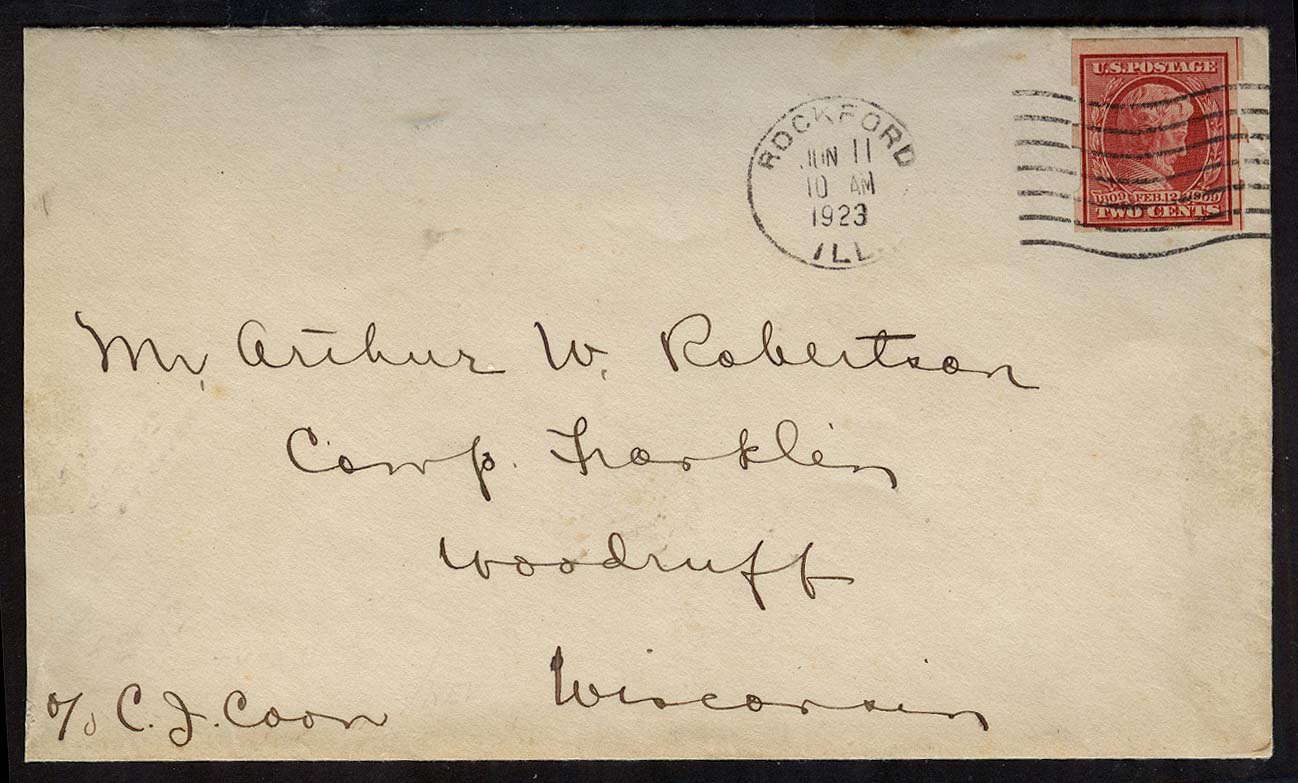 U.S. POSTAGE
1909 FEB. 12 1909
TWO CENTS
ROCKFORD
JUN 11
10 AM
1923
ILL.
Mr. Arthur W. Robertson
Camp Franklin
Woodruff
Wisconsin
c/o C. J. Coon